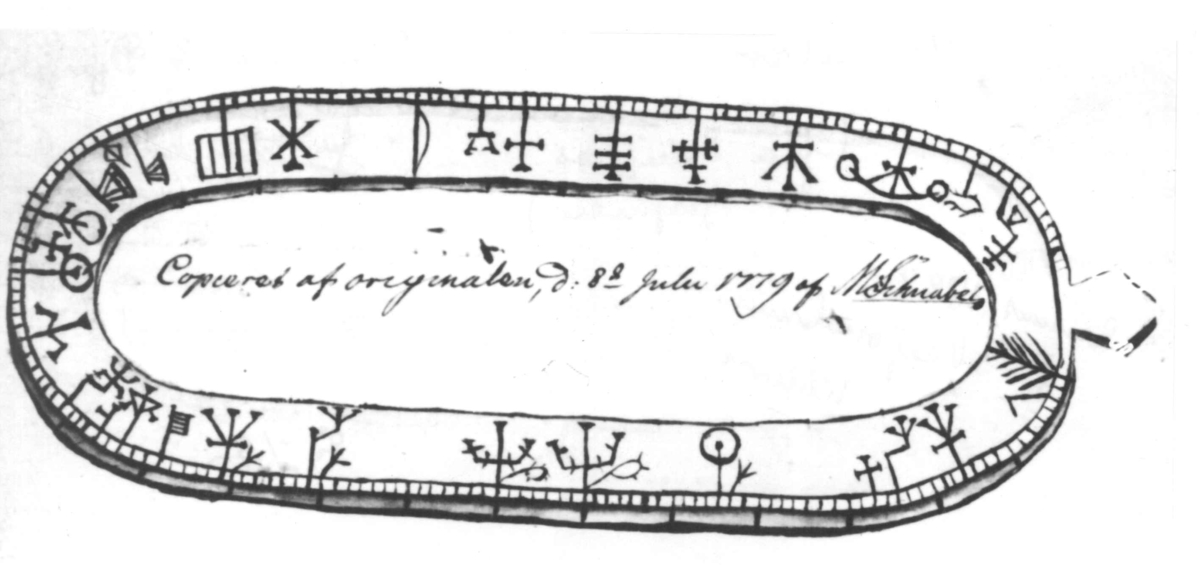 Copieret af originalen, d: 8de Julii 1779 af MSchnabel